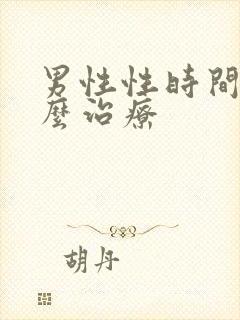 男性性時間
麼治療
胡丹